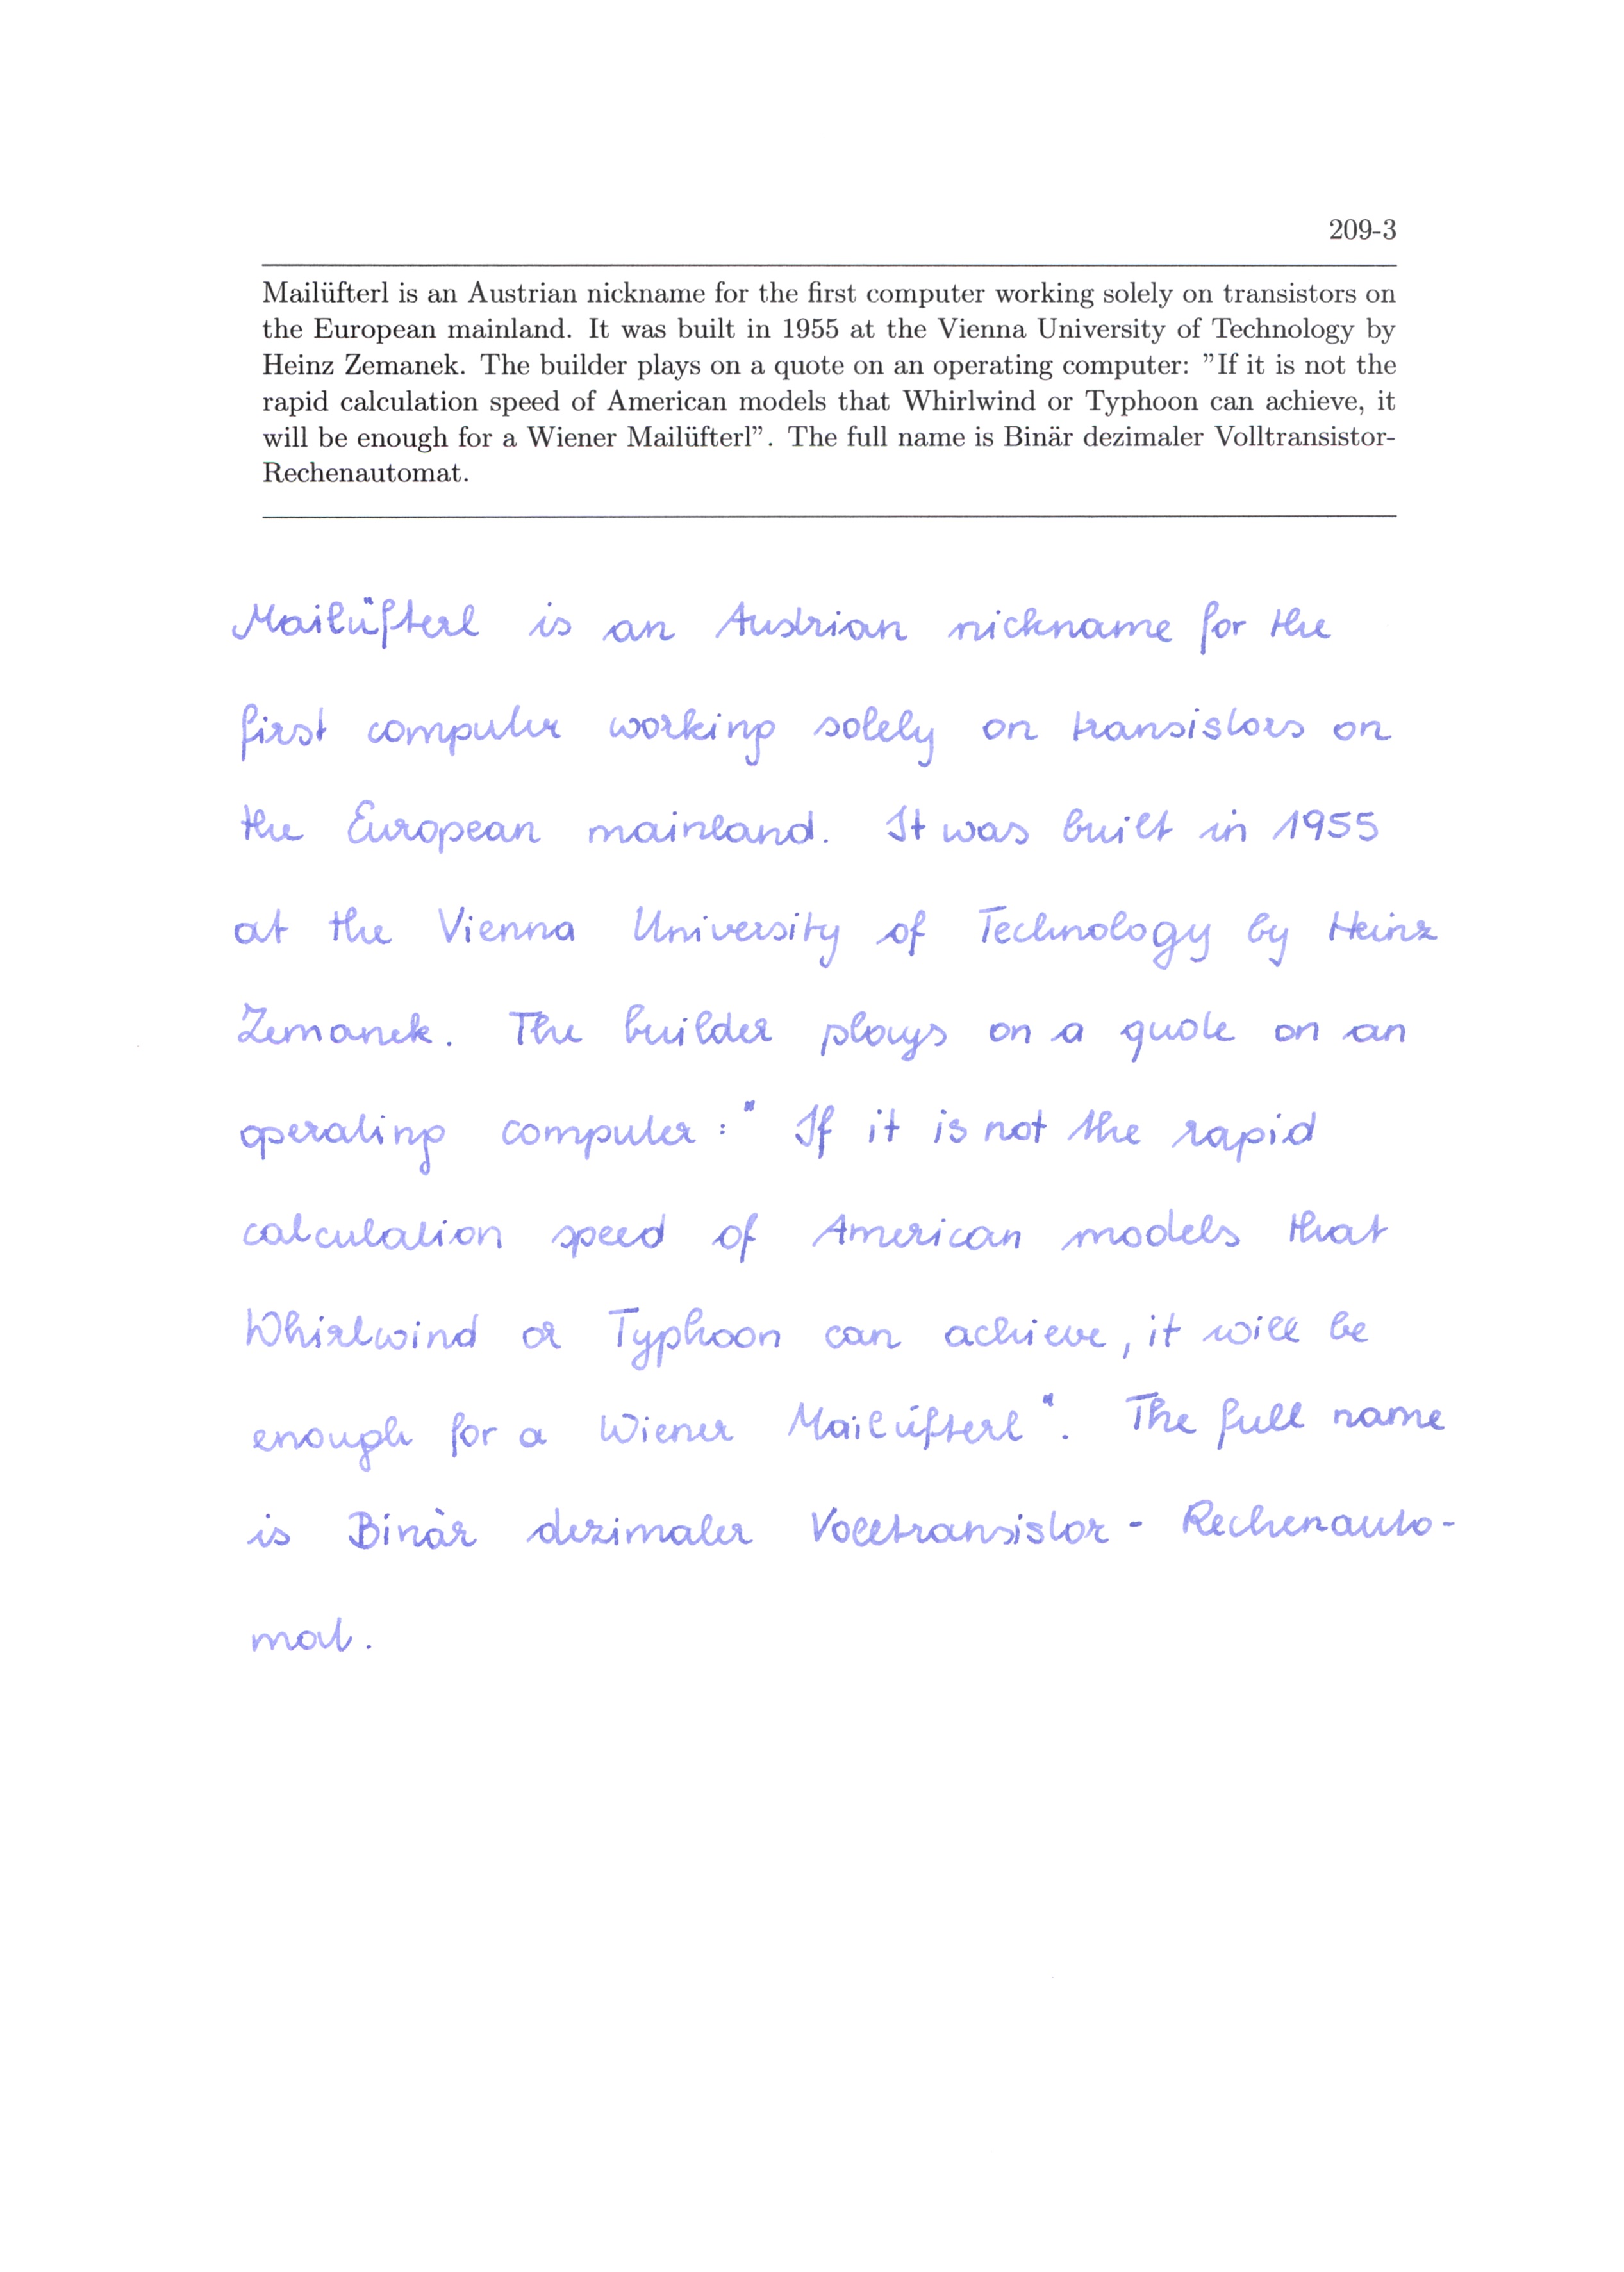 209-3
Mailüfterl is an Austrian nickname for the first computer working solely on transistors on
the European mainland. It was built in 1955 at the Vienna University of Technology by
Heinz Zemanek. The builder plays on a quote on an operating computer: ”If it is not the
rapid calculation speed of American models that Whirlwind or Typhoon can achieve, it
will be enough for a Wiener Mailüfterl”. The full name is Binär dezimaler Volltransistor-
Rechenautomat.
Mailüfterl is an Austrian nickname for the
first computer working solely on transistors on
the European mainland. It was built in 1955
at the Vienna University of Technology by Heinz
Zemanek. The builder plays on a quote on an
operating computer:" If it is not the rapid
calculation speed of American models that
Whirlwind or Typhoon can achieve, it will be
enough for a Wiener Mailüfterl". The full name
is Binär dezimaler Volltransistor - Rechenauto-
mat.